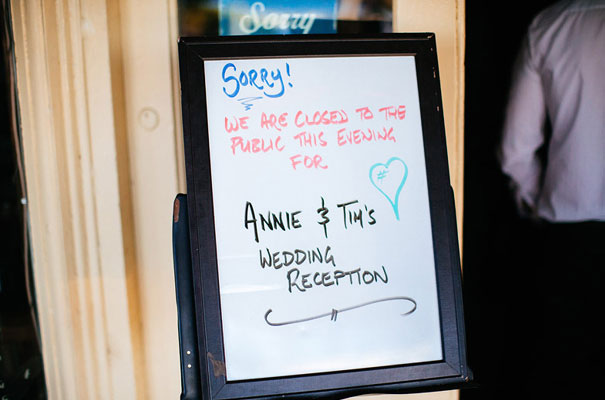 Sorry
SORRY!
WE ARE CLOSED TO THE
PUBLIC THIS EVENING
FOR
ANNIE & TIM'S
WEDDING
RECEPTION